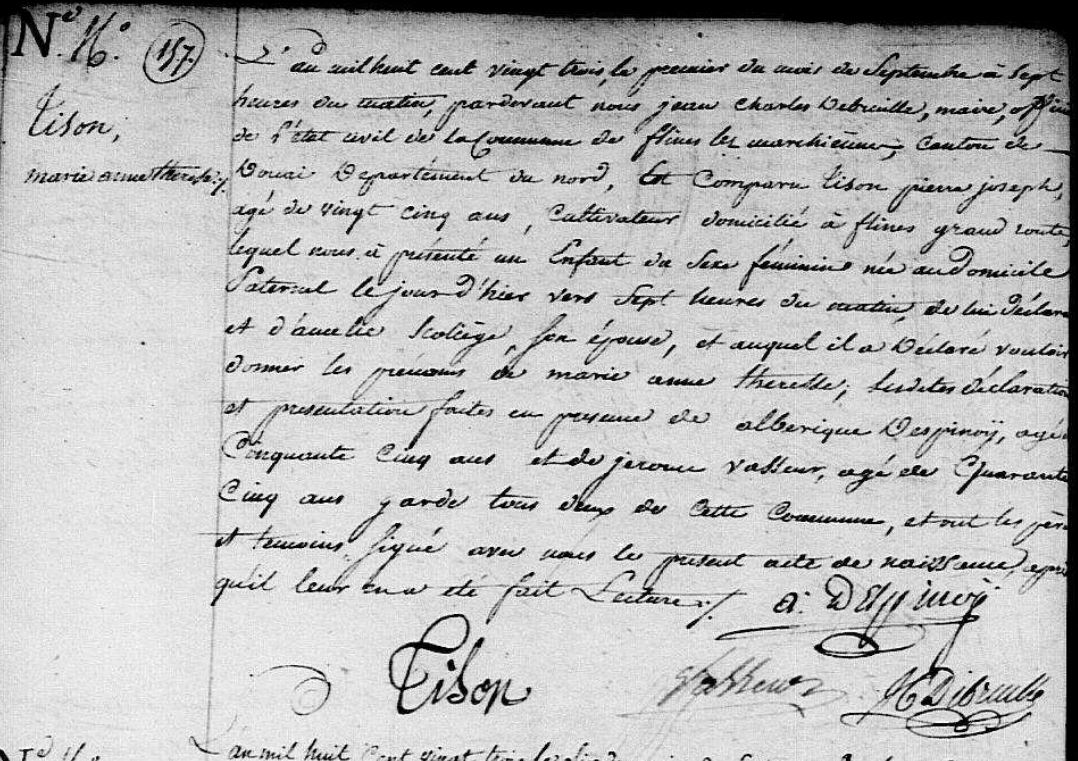 N.º
157.
Tison,
marie anne therese ./.
L'an mil huit cent vingt trois, le premier du mois de Septembre à Sept
heures du matin, pardevant nous jean charles Debruille, maire, offi
de l'état civil de la Commune de flines lez marchiennes, canton de
Douai Departement du nord, Est Comparu tison pierre joseph,
agé de vingt cinq ans, Cultivateur domicilié à flines grand route,
lequel nous à présenté un Enfant du Sexe féminin née au Domicile
Paternel le jour d'hier vers Sept heures du matin, de lui déclara
et d'amelie Scoliège, Son épouse, et auquel il a Déclaré vouloir
donner les prénoms de marie anne theresse; lesdites déclaration
et presentation faites en presence de alberique Despinoÿ, agé
Cinquante Cinq ans et de jerome vasseur, agé de Quarante
Cinq ans garde tous deux de cette Commune, et ont les père
et temoins Signé avec nous le present acte de naissance, après
qu'il leur en a été fait Lecture ./.
a. DEspinoÿ
Tison
Debruille
L'an mil huit Cent vingt trois le